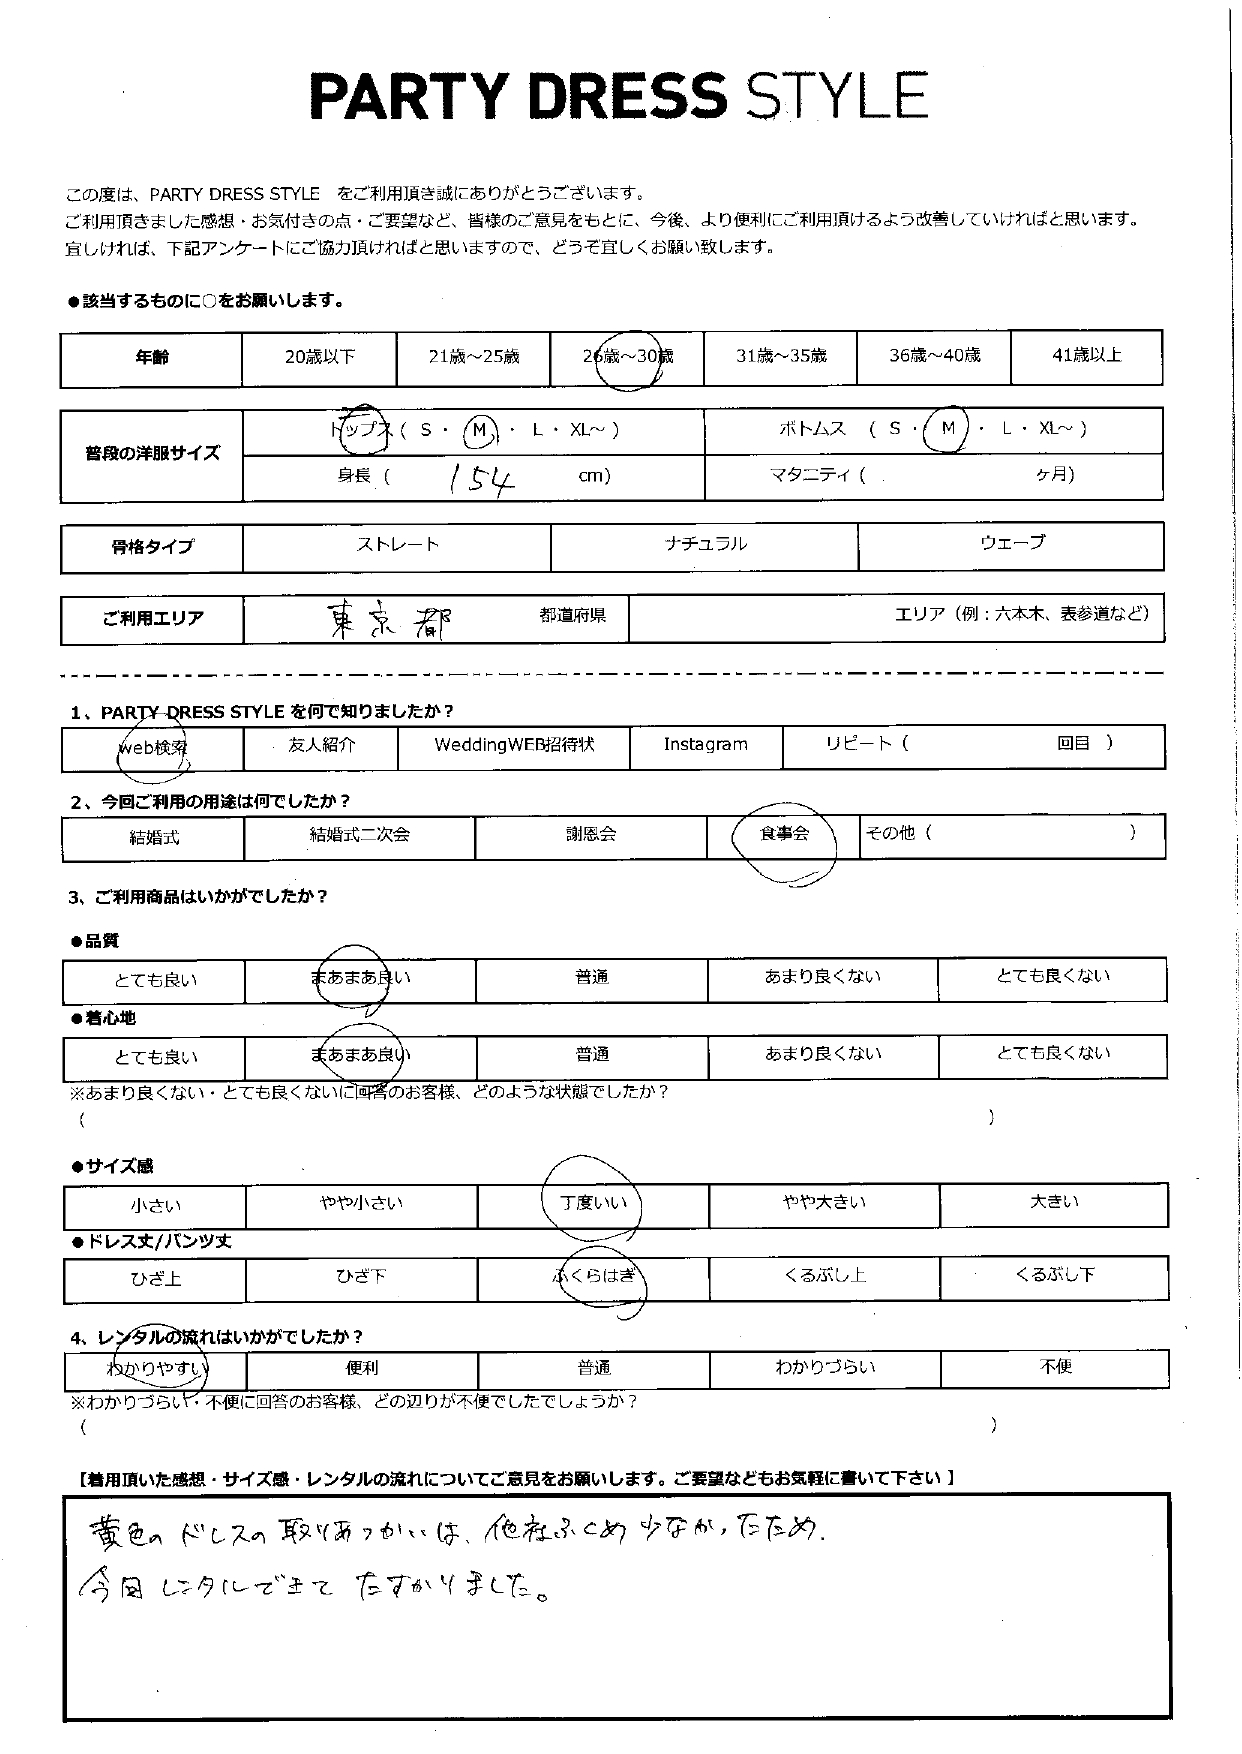 PARTY DRESS STYLE
この度は、PARTY DRESS STYLE をご利用頂き誠にありがとうございます。
ご利用頂きました感想・お気付きの点・ご要望など、皆様のご意見をもとに、今後、より便利にご利用頂けるよう改善していければと思います。
宜しければ、下記アンケートにご協力頂ければと思いますので、どうぞ宜しくお願い致します。
●該当するものに○をお願いします。
年齢 20歳以下 21歳～25歳 26歳～30歳 31歳～35歳 36歳～40歳 41歳以上
普段の洋服サイズ トップス ( S ・ M ・ L ・ XL～ ) ボトムス ( S ・ M ・ L ・ XL～ )
身長 ( 154 cm) マタニティ ( ヶ月)
骨格タイプ ストレート ナチュラル ウェーブ
ご利用エリア 東京都 都道府県 エリア（例：六本木、表参道など）
1、PARTY DRESS STYLE を何で知りましたか？
web検索 友人紹介 WeddingWEB招待状 Instagram リピート ( 回目 )
2、今回ご利用の用途は何でしたか？
結婚式 結婚式二次会 謝恩会 食事会 その他 ( )
3、ご利用商品はいかがでしたか？
●品質
とても良い まあまあ良い 普通 あまり良くない とても良くない
●着心地
とても良い まあまあ良い 普通 あまり良くない とても良くない
※あまり良くない・とても良くないに回答のお客様、どのような状態でしたか？
( )
●サイズ感
小さい やや小さい 丁度いい やや大きい 大きい
●ドレス丈/パンツ丈
ひざ上 ひざ下 ふくらはぎ くるぶし上 くるぶし下
4、レンタルの流れはいかがでしたか？
わかりやすい 便利 普通 わかりづらい 不便
※わかりづらい・不便に回答のお客様、どの辺りが不便でしたでしょうか？
( )
【着用頂いた感想・サイズ感・レンタルの流れについてご意見をお願いします。ご要望などもお気軽に書いて下さい 】
黄色の ドレスの 取りあつかいは、他社ふくめ 少なかったため、
今回 レンタルできて たすかりました。